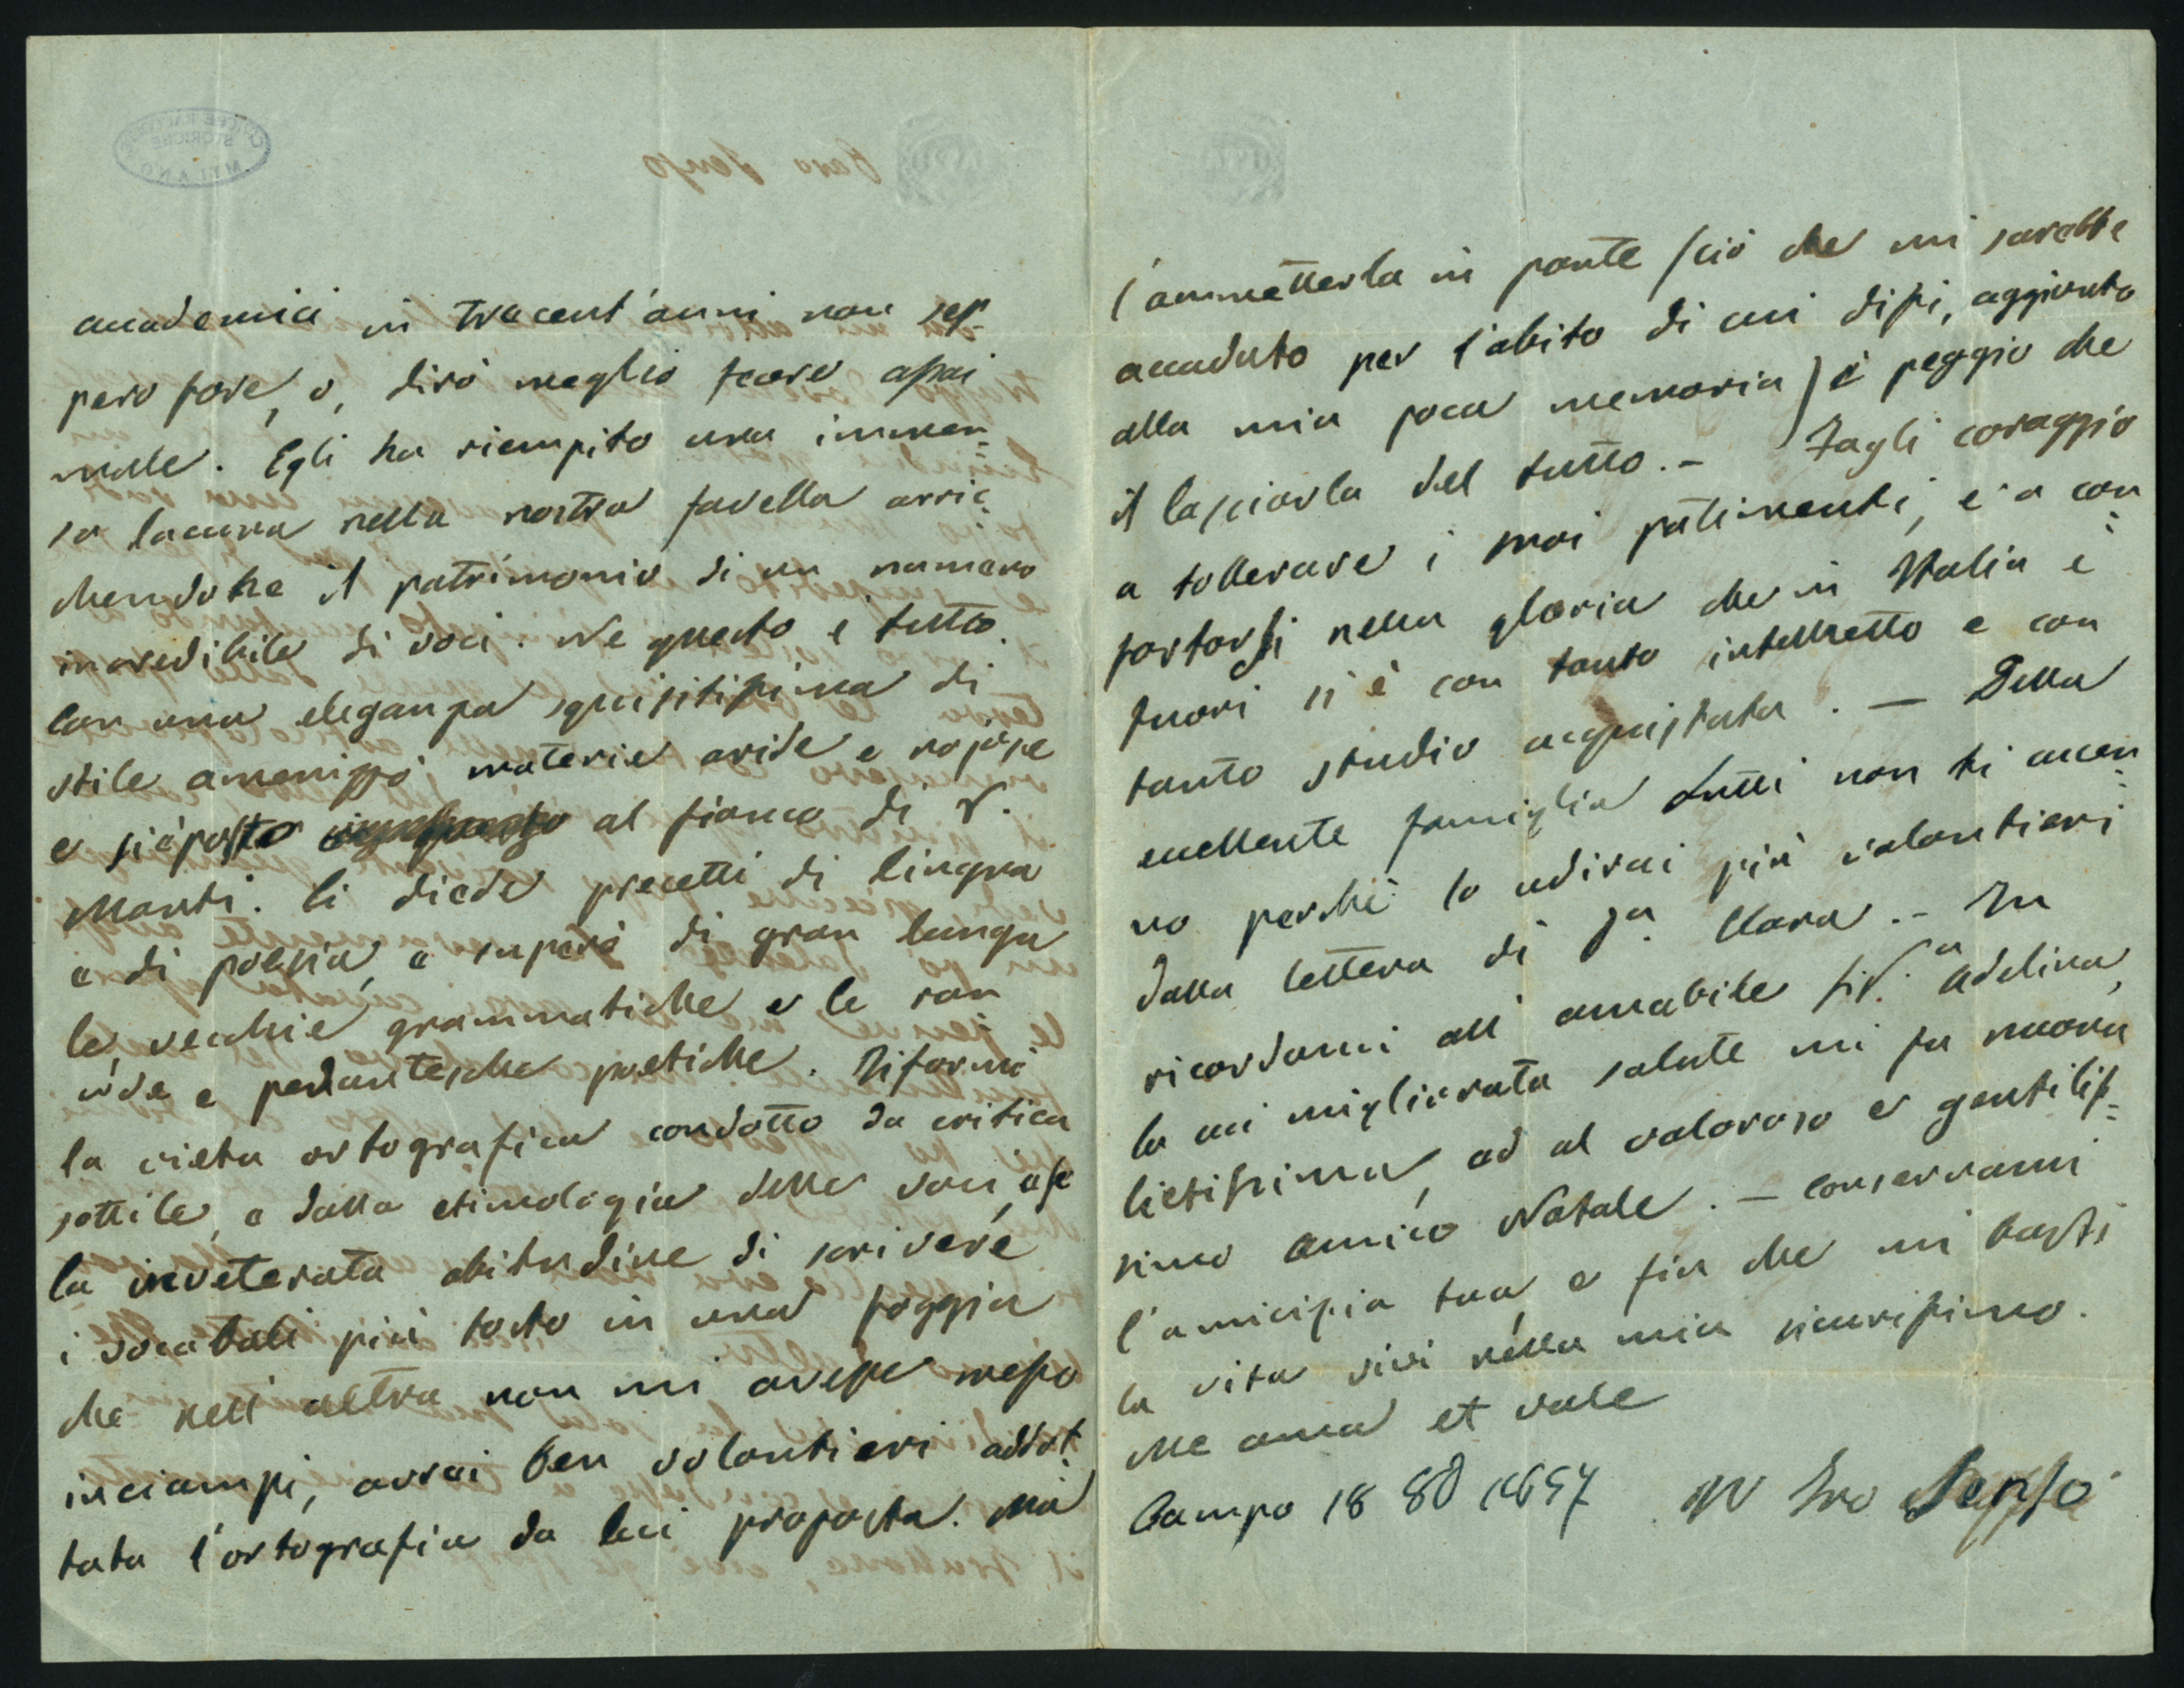 accademici in trecent'anni non sep-
pero fare, o, dirò meglio fecero assai
male. Egli ha riempito una immen=
sa lacuna nella nostra favella arric=
chendone il patrimonio di un numero
incredibile di voci. Ne questo è tutto.
Con una eleganza squisitissima di
stile amenizzò materie aride e nojose
e si è posto al fianco di V.
Monti. Ci diede precetti di lingua
e di poesia, e superò di gran lunga
le vecchie grammatiche e le ran=
cide e pedantesche poetiche. Riformò
la vieta ortografia condotto da critica
sottile, e dalla etimologia delle voci, e se
la inveterata abitudine di scrivere
i vocaboli più tosto in una foggia
che nell altra non mi avesse messo
inciampi, avrei ben volontieri addot=
tata l'ortografia da lui proposta. Ma
l'ammetterla in parte (ciò che mi sarebbe
accaduto per l'abito di cui dissi, aggiunto
alla mia poca memoria) è peggio che
il lasciarla del tutto. - Fagli coraggio
a tollerare i suoi patimenti, e a con=
fortarsi nella gloria che in Italia e
fuori si è con tanto intelletto e con
tanto studio acquistata. — Della
eccellente famiglia Lutti non ti accen=
no perchè lo udirai più volontieri
dalla lettera di Sa. Clara. - Tu
ricordami all amabile Siga. Adelina,
la cui migliorata salute mi fu nuova
lietissima, ed al valoroso e gentilis=
simo amico Natale. — Conservami
l'amicizia tua, e fin che mi basti
la vita vivi nella mia sicurissimo.
Me ama et vale
Campo 18 8b 1857 Il tuo
Caro
MILANO